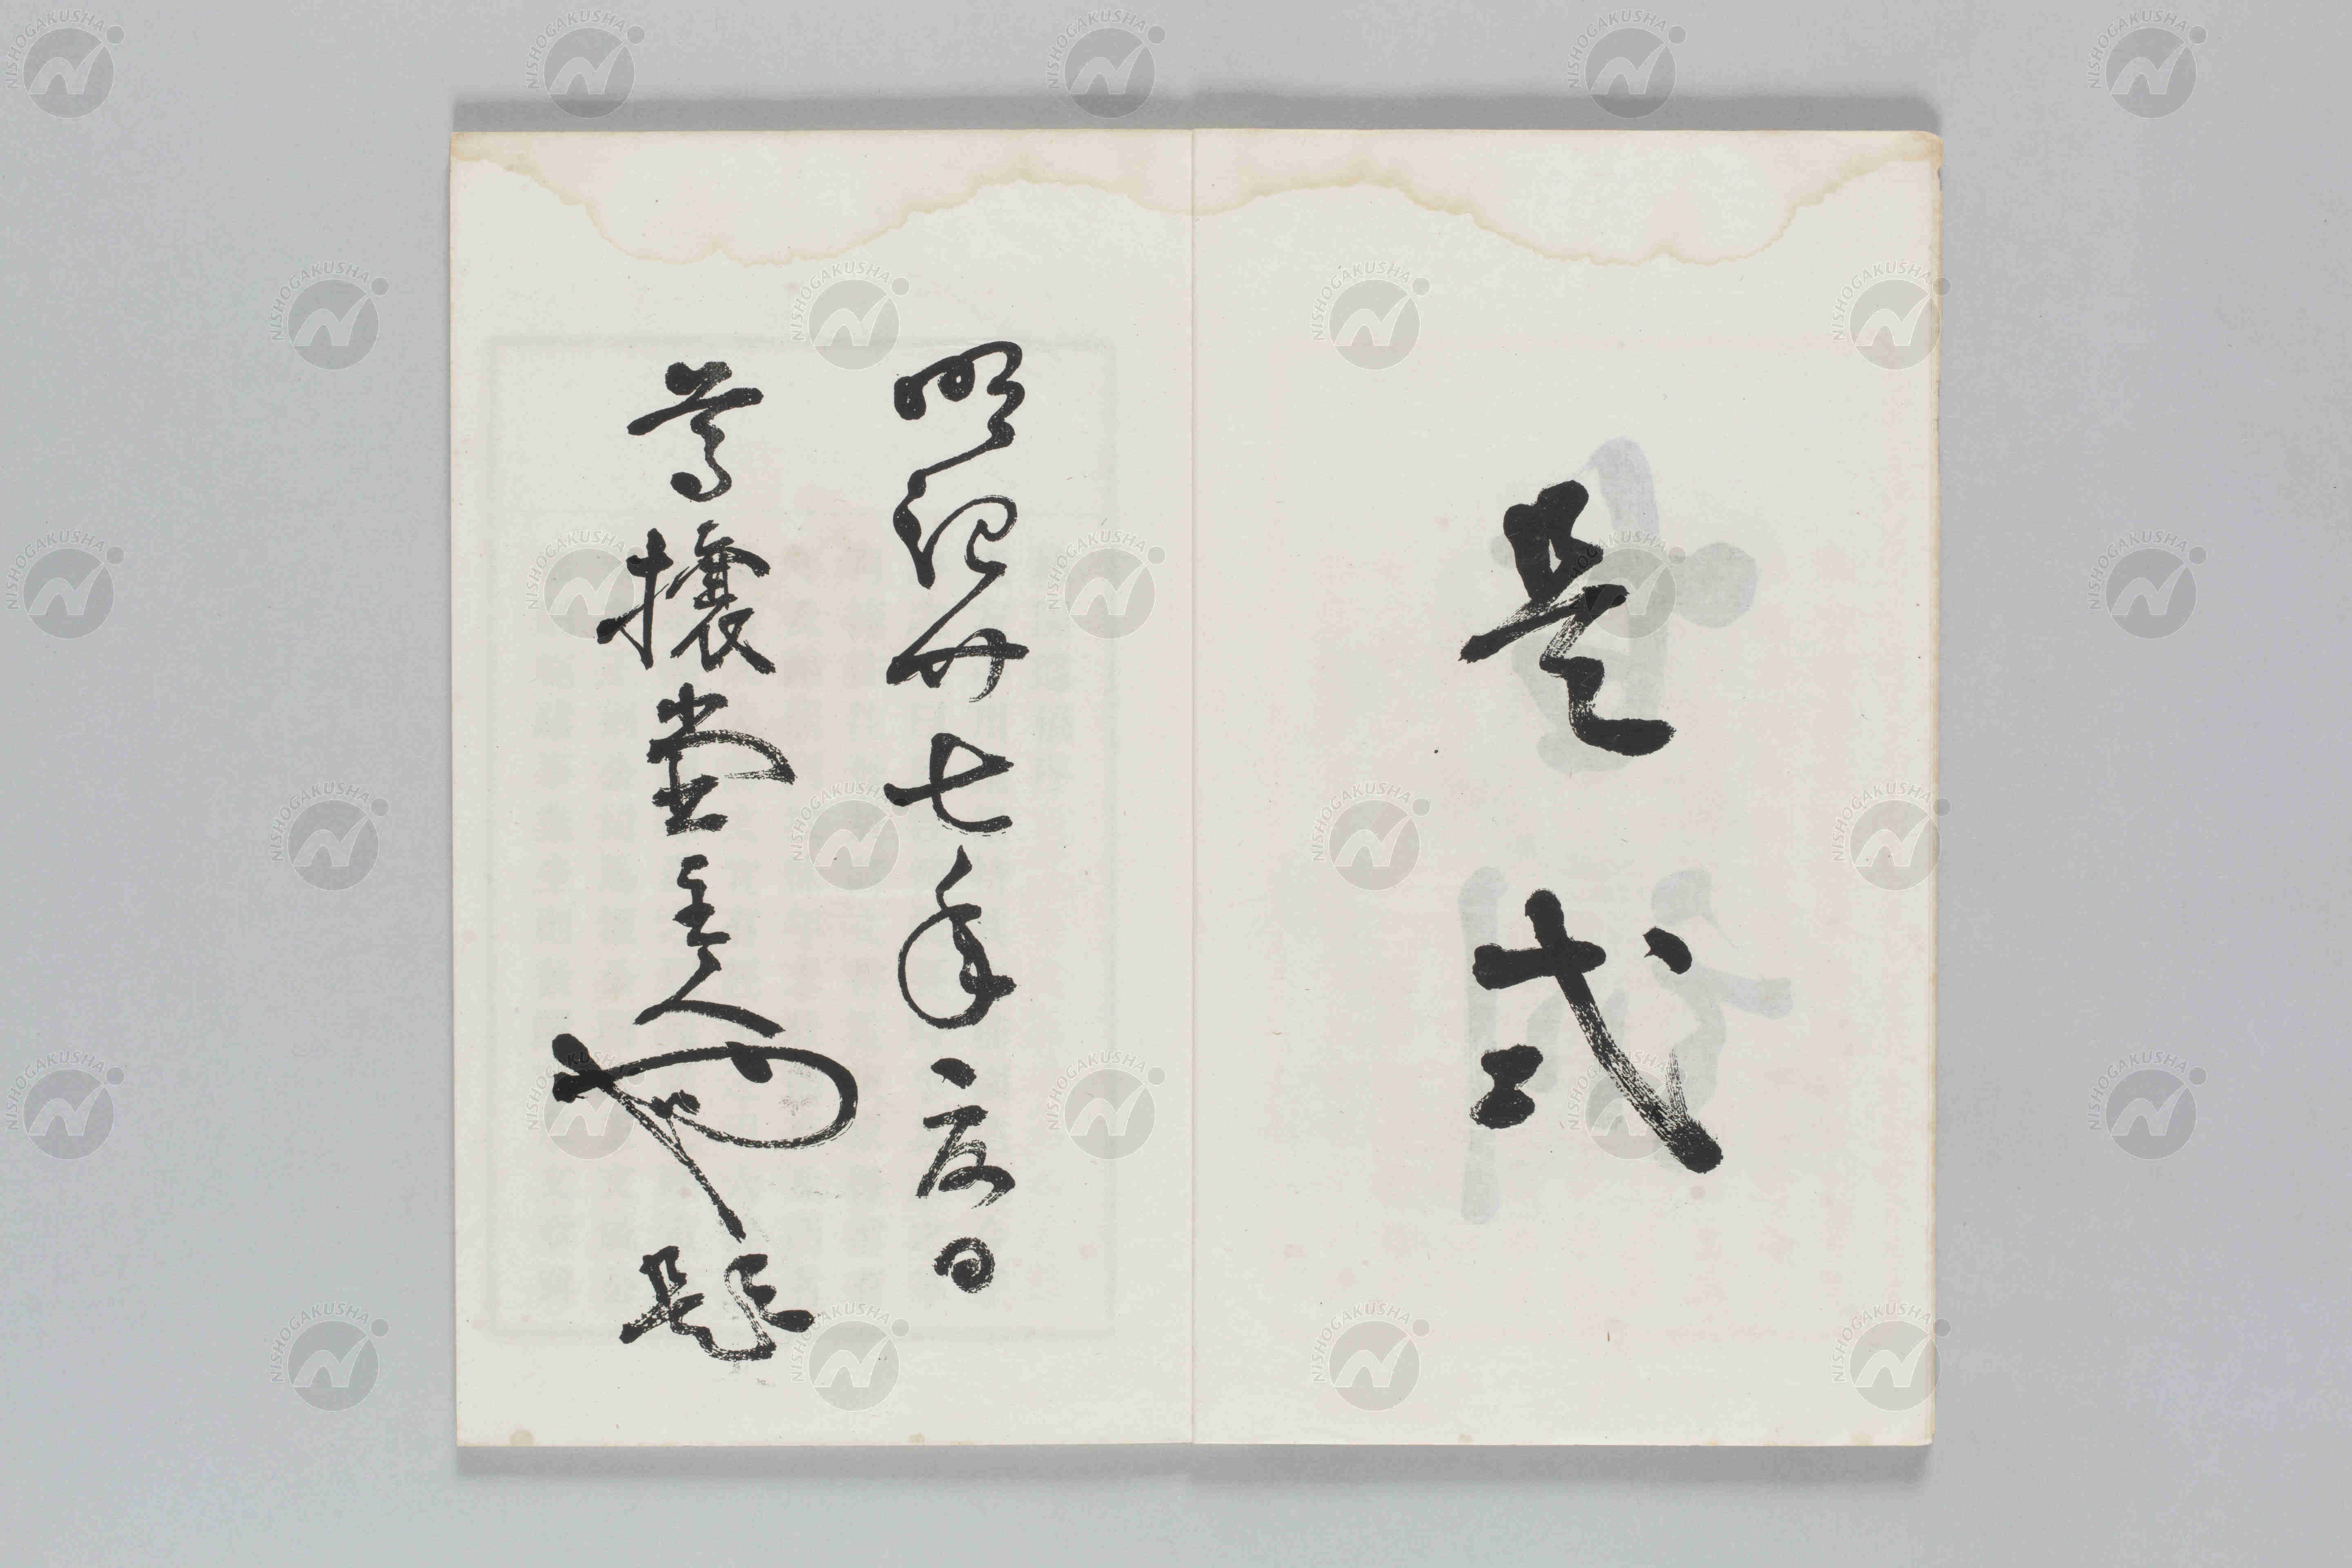 是式
明治廿七年夏日
尊攘堂主人 題
NISHOGAKUSHA